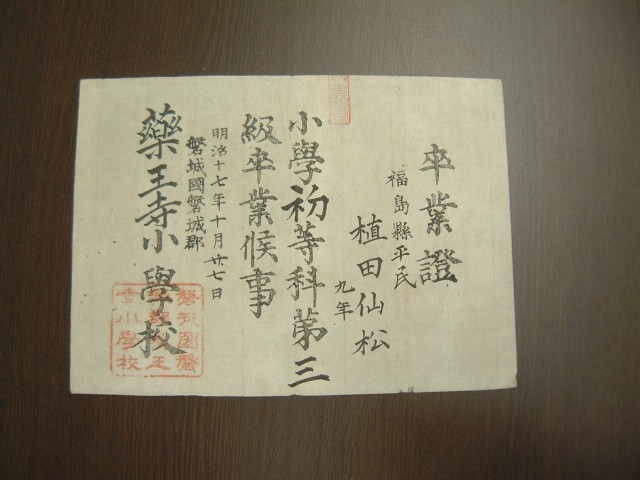 卒業證
福島縣平民
植田仙松
九年
小學初等科第三
級卒業候事
明治十七年十月廿七日
磐城國磐城郡
藥王寺小學校
磐城國磐
城郡藥王
寺小學校